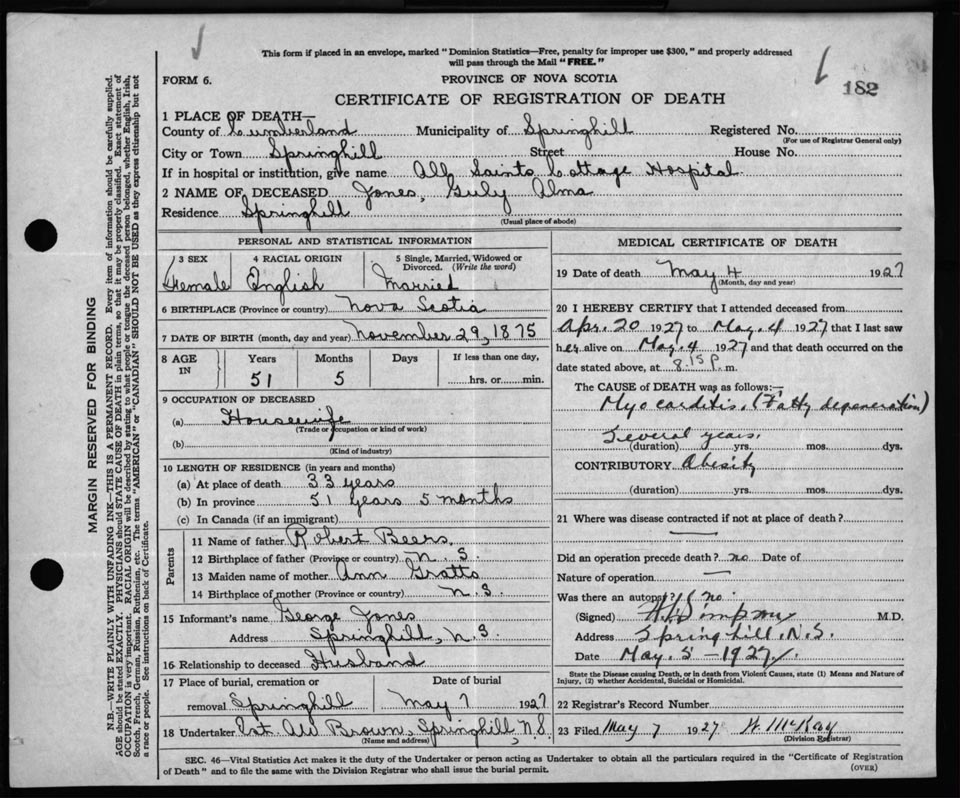 This form if placed in an envelope, marked "Dominion Statistics—Free, penalty for improper use $300," and properly addressed
will pass through the Mail "FREE."
FORM 6.
PROVINCE OF NOVA SCOTIA
182
CERTIFICATE OF REGISTRATION OF DEATH
1 PLACE OF DEATH—
County of Cumberland Municipality of Springhill Registered No.
(For use of Registrar General only)
City or Town Springhill Street House No.
If in hospital or institution, give name All Saints Cottage Hospital
2 NAME OF DECEASED Jones, Alma
Residence Springhill
(Usual place of abode)
PERSONAL AND STATISTICAL INFORMATION
3 SEX 4 RACIAL ORIGIN 5 Single, Married, Widowed or
Divorced. (Write the word)
Female English Married
6 BIRTHPLACE (Province or country) Nova Scotia
7 DATE OF BIRTH (month, day and year) November 29, 1875
8 AGE IN Years Months Days If less than one day,
51 5 hrs. or min.
9 OCCUPATION OF DECEASED
(a) Housewife
(Trade or occupation or kind of work)
(b)
(Kind of industry)
10 LENGTH OF RESIDENCE (in years and months)
(a) At place of death 33 years
(b) In province 51 years 5 months
(c) In Canada (if an immigrant)
Parents
11 Name of father Robert Beers.
12 Birthplace of father (Province or country) N. S.
13 Maiden name of mother Ann Gratto
14 Birthplace of mother (Province or country) N. S.
15 Informant's name George Jones
Address Springhill, N. S
16 Relationship to deceased Husband
17 Place of burial, cremation or Date of burial
removal Springhill May 7 1927
18 Undertaker Est. AW Brown, Springhill, N.S.
(Name and address)
MEDICAL CERTIFICATE OF DEATH
19 Date of death May 4 1927
(Month, day and year)
20 I HEREBY CERTIFY that I attended deceased from
Apr. 20 1927 to May. 4 1927 that I last saw
her alive on May. 4 1927 and that death occurred on the
date stated above, at 8.15 P. m.
The CAUSE OF DEATH was as follows:—
Myocarditis. (Fatty degeneration)
Several years.
(duration) yrs. mos. dys.
CONTRIBUTORY Obesity
(duration) yrs. mos. dys.
21 Where was disease contracted if not at place of death?
Did an operation precede death? no Date of
Nature of operation —
Was there an autopsy? no.
(Signed) M.D.
Address Springhill. N.S.
Date May. 5 – 1927.
State the Disease causing Death, or in death from Violent Causes, state (1) Means and Nature of
Injury, (2) whether Accidental, Suicidal or Homicidal.
22 Registrar's Record Number
23 Filed May 7 1927 McKay
(Division Registrar)
SEC. 46—Vital Statistics Act makes it the duty of the Undertaker or person acting as Undertaker to obtain all the particulars required in the "Certificate of Registration
of Death" and to file the same with the Division Registrar who shall issue the burial permit.
(OVER)
MARGIN RESERVED FOR BINDING
N.B.—WRITE PLAINLY WITH UNFADING INK—THIS IS A PERMANENT RECORD. Every item of information should be carefully supplied.
AGE should be stated EXACTLY. PHYSICIANS should STATE CAUSE OF DEATH in plain terms, so that it may be properly classified. Exact statement of
OCCUPATION is very important. RACIAL ORIGIN will be described by stating to what people or tongue the deceased person belonged, whether English, Irish,
Scotch, French, German, Russian, Ruthenian, etc. The terms "AMERICAN" or "CANADIAN" SHOULD NOT BE USED as they express citizenship but not
a race or people. See instructions on back of Certificate.